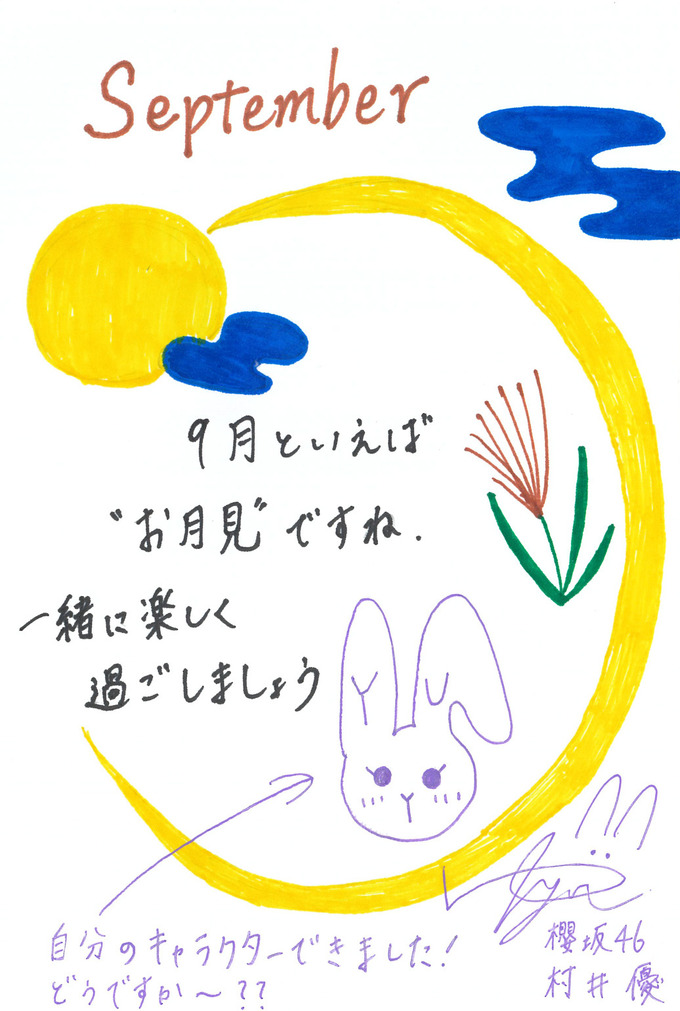 September
9月といえば
“お月見”ですね.
一緒に楽しく
過ごしましょう
YU
自分のキャラクターできました!
どうですか〜??
櫻坂46
村井優